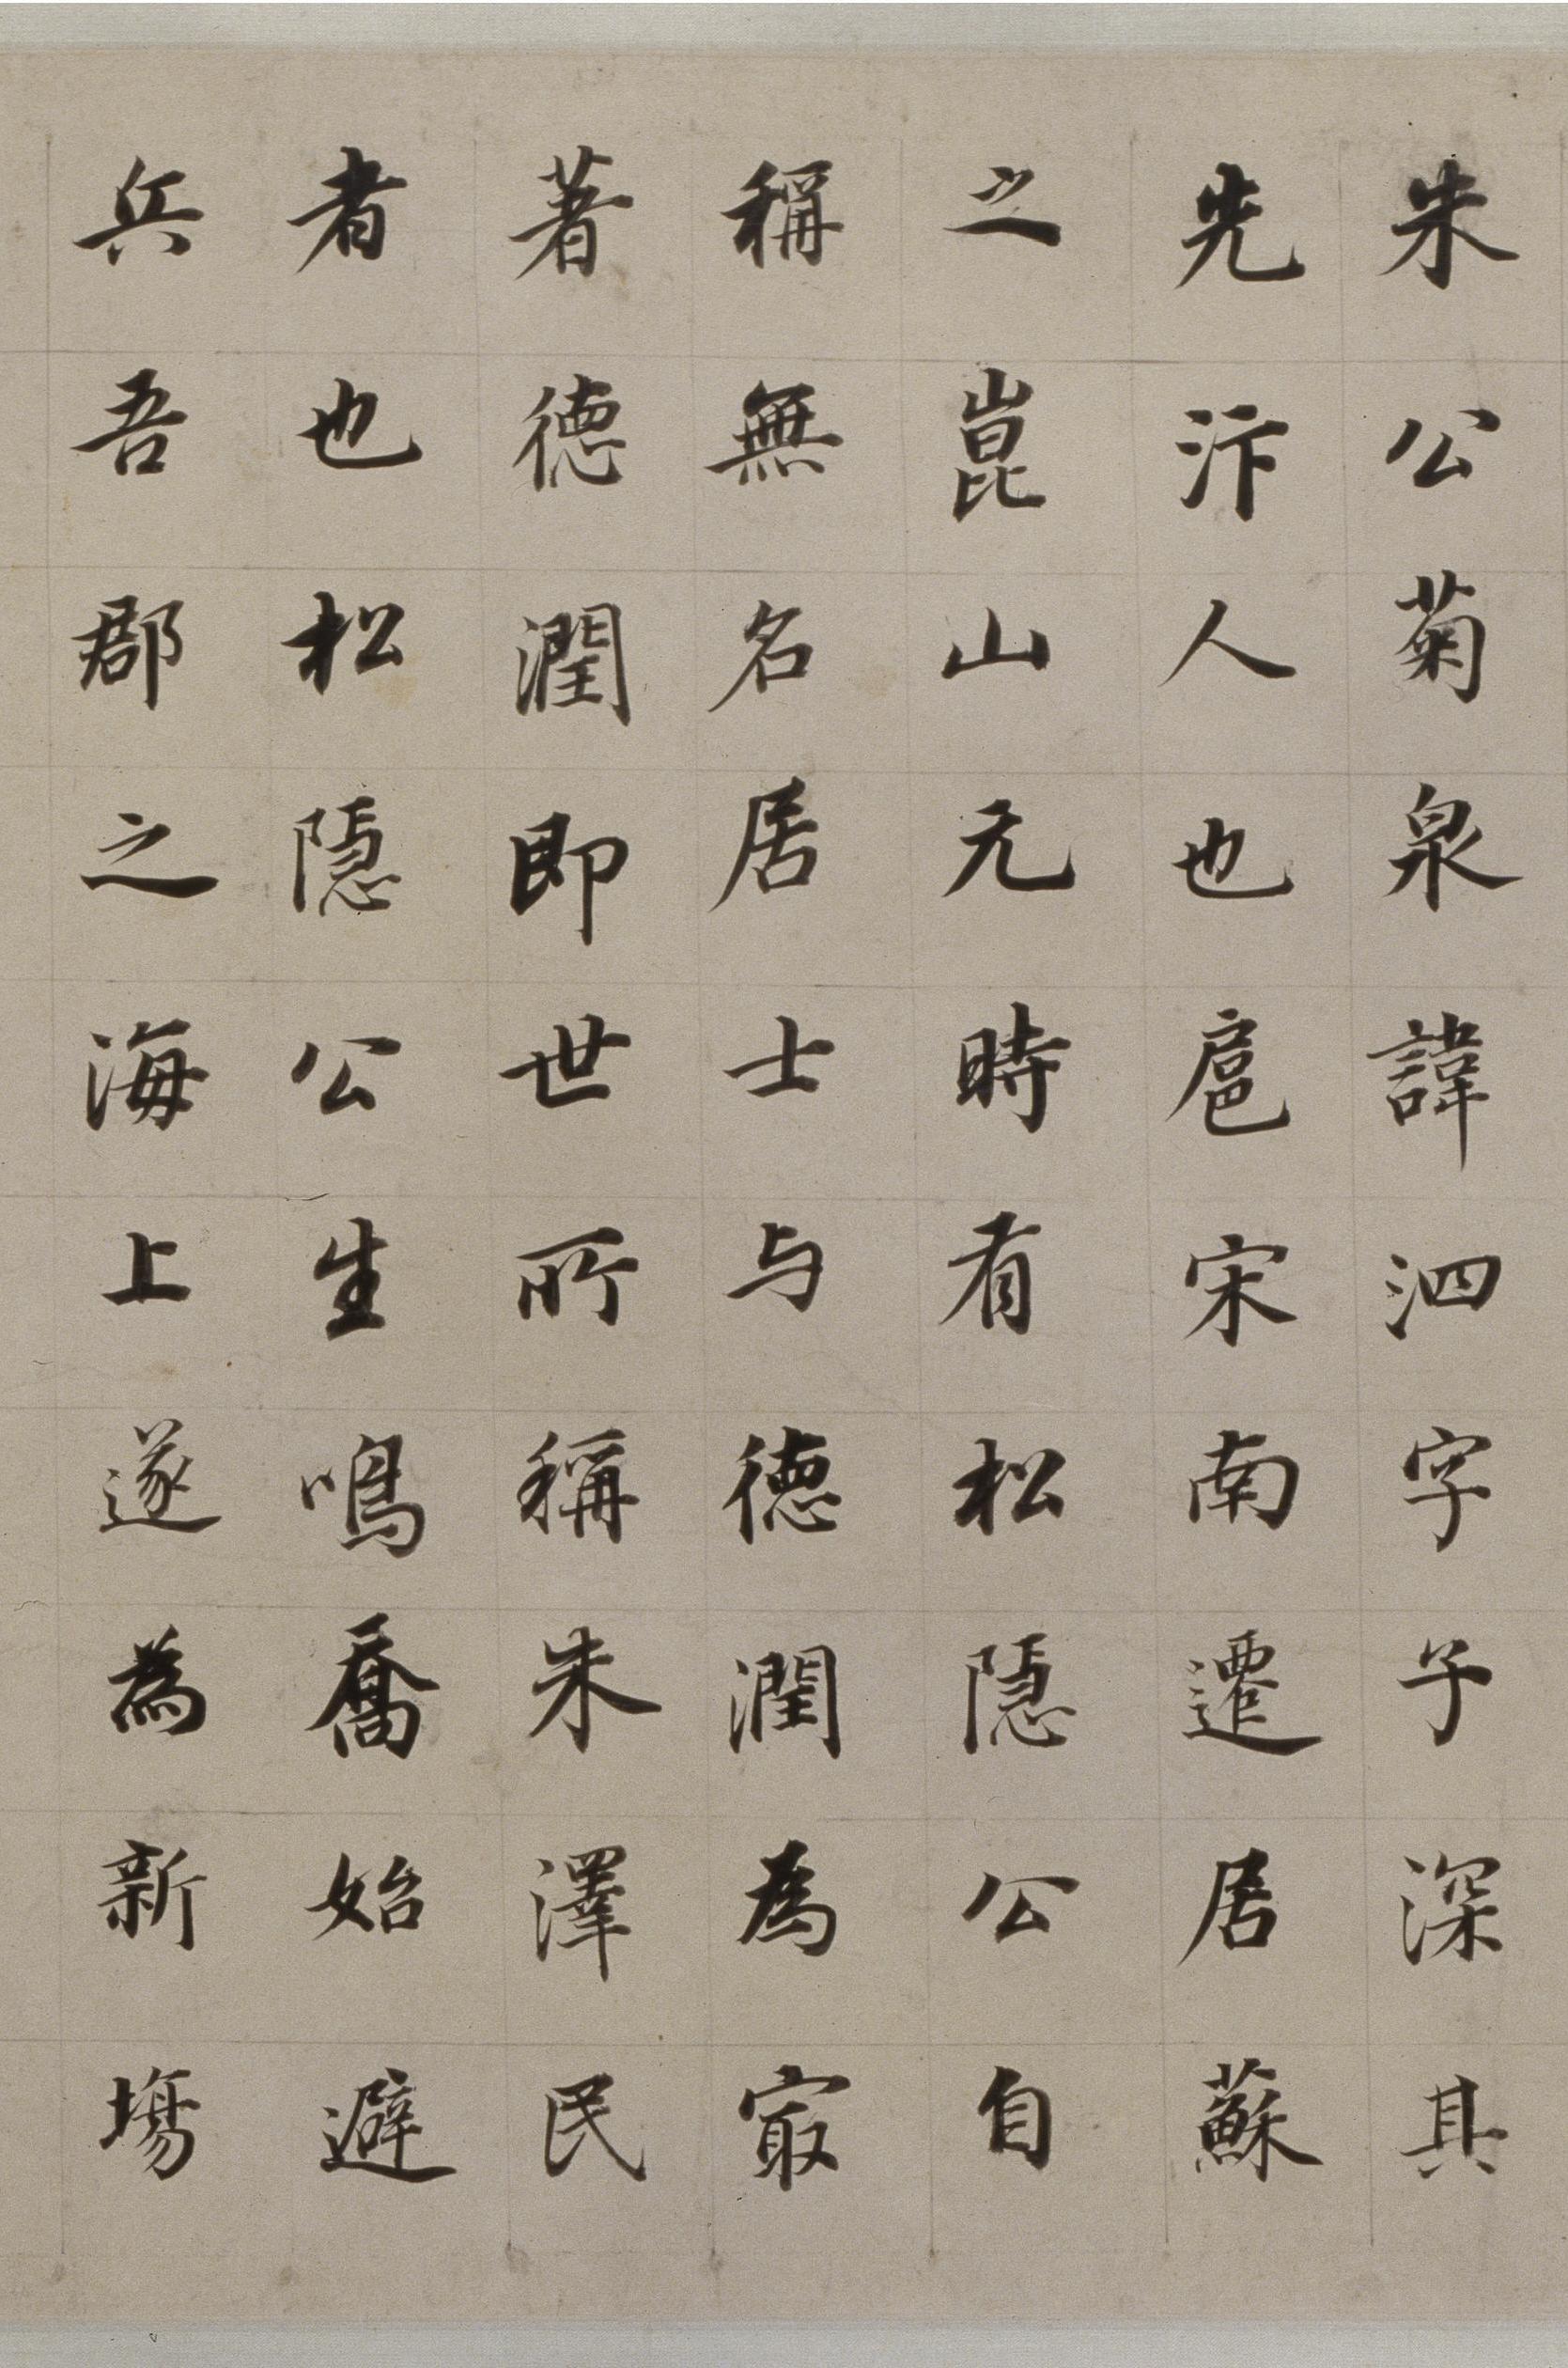 朱公菊泉諱泗字子深其
先汴人也扈宋南遷居蘇
之崑山元時有松隱公自
稱無名居士与德潤為㝡
著德潤即世所稱朱澤民
者也松隱公生鳴喬始避
兵吾郡之海上遂為新塲